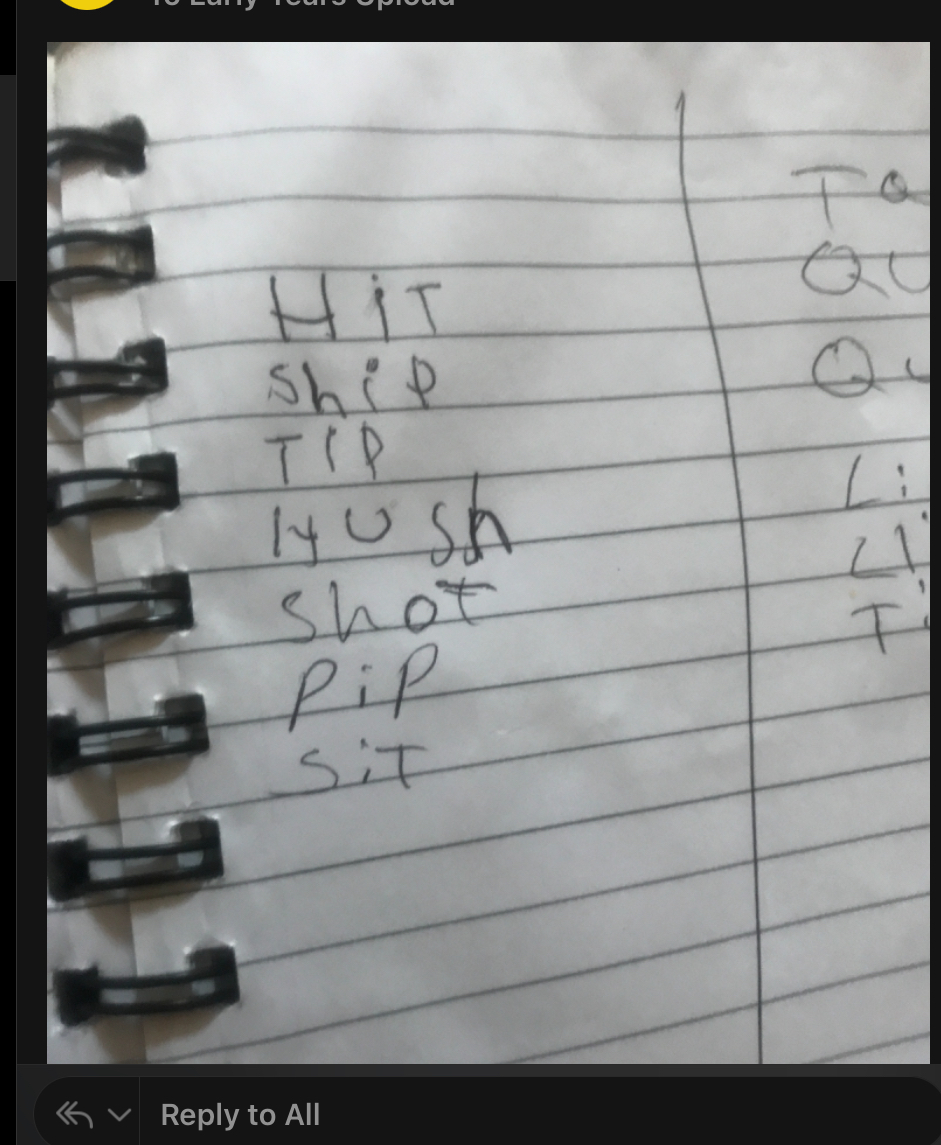 To Early Years Upload
HiT
Ship
TIP
Shot
PiP
SiT
Ta
QU
Qu
Li
Ti
Reply to All